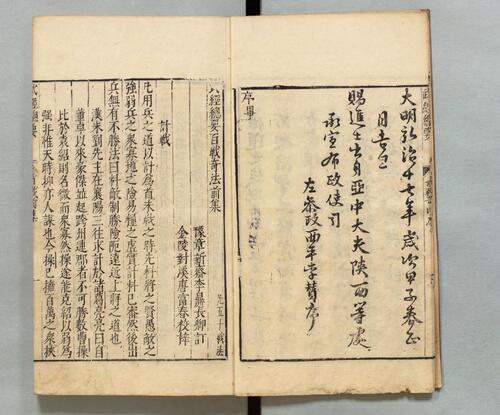 大明弘治十七年歲次甲子春正
月吉旦
賜進士出身亞中大夫陝西等處
承宣布政使司
左參政西平李贊序
序畢
武經總要百戰奇法前集
豫章新蔡李鼎長卿訂
金陵對溪唐富春校梓
計戰
凡用兵之道以計為首未戰之時先料將之賢愚敵之
強弱兵之衆寡地之險易糧之虛實計料已審然後出
兵無有不勝法曰料敵制勝險阨遠近上將之道也
漢末劉先主在襄陽三往求計於諸葛亮亮曰自
董卓以來豪傑並起跨州連郡者不可勝數曹操
比於袁紹則名微而衆寡然操遂能克紹以弱為
強非惟天時抑亦人謀也今操已擁百萬之衆挾